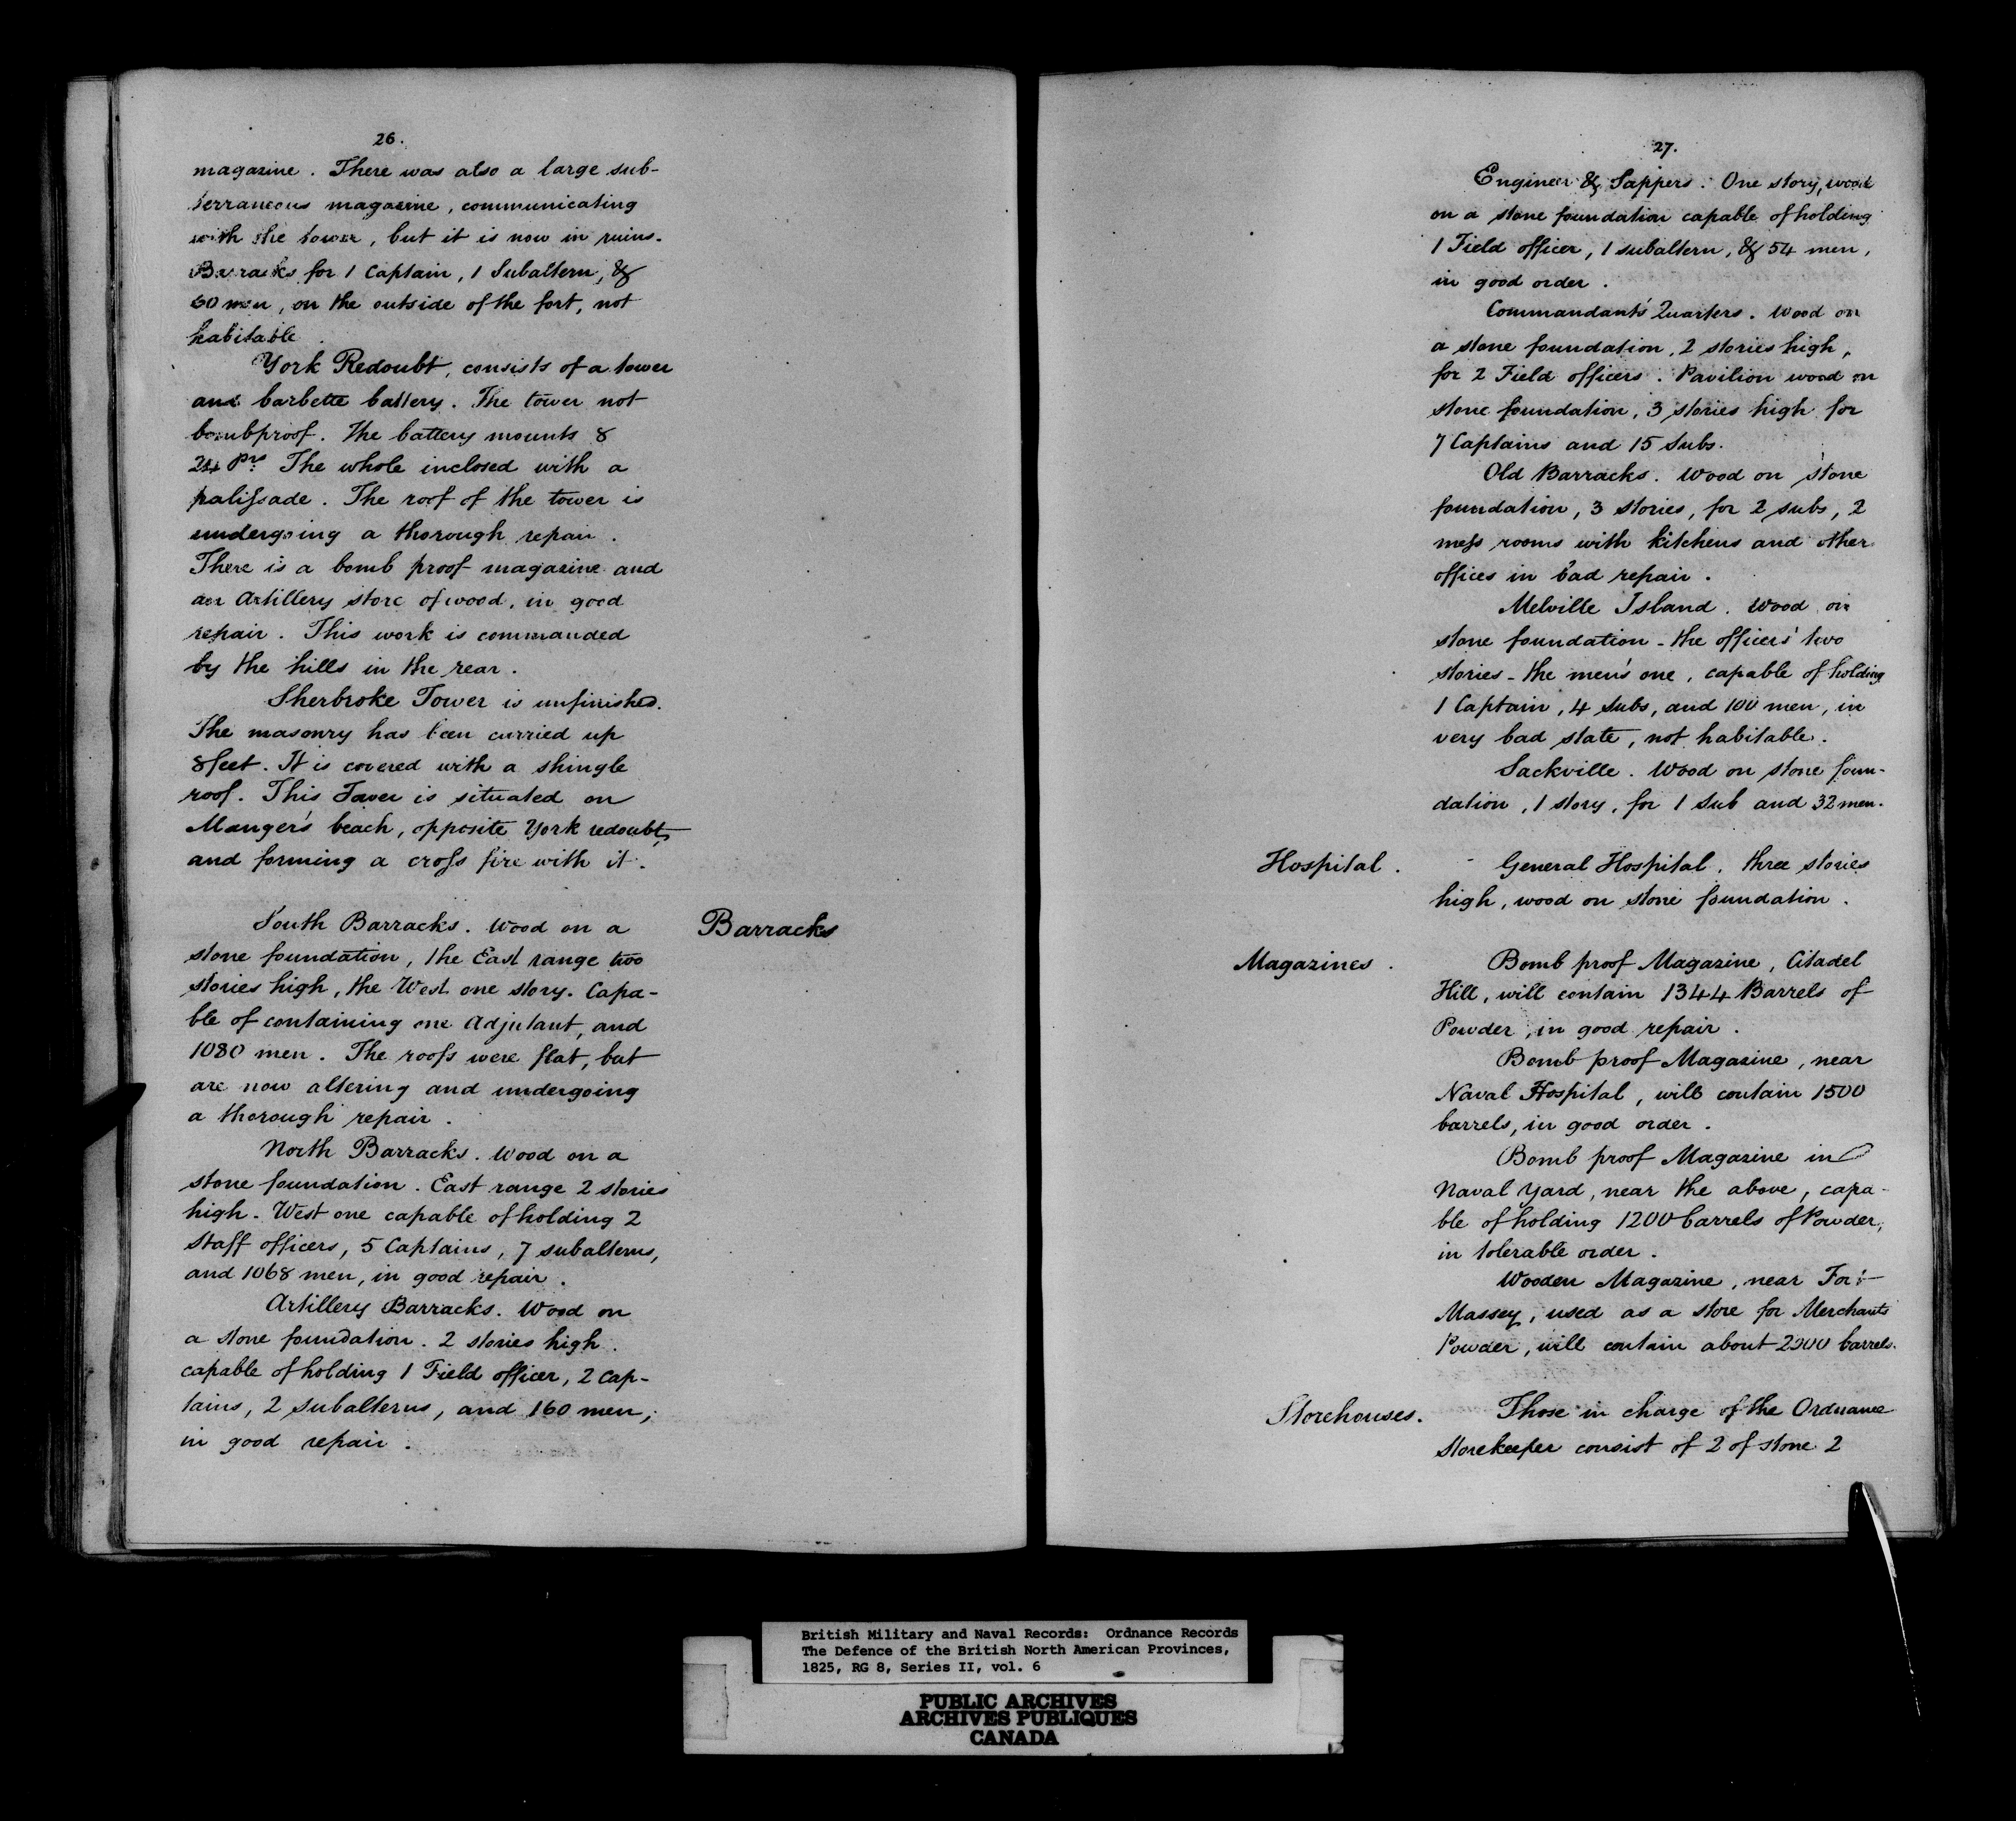 26.
magazine. There was also a large sub-
terraneous magazine, communicating
with the tower, but it is now in ruins.
Barracks for 1 Captain, 1 Subaltern, &
60 men, on the outside of the fort, not
habitable.
York Redoubt, consists of a tower
and barbette battery. The tower not
bombproof. The battery mounts 8
24 Prs. The whole inclosed with a
palissade. The roof of the tower is
undergoing a thorough repair.
There is a bomb proof magazine and
an Artillery store of wood, in good
repair. This work is commanded
by the hills in the rear.
Sherbroke Tower is unfinished.
The masonry has been carried up
8 feet. It is covered with a shingle
roof. This Tower is situated on
Mauger's beach, opposite York redoubt,
and forming a cross fire with it.
Barracks
South Barracks. Wood on a
stone foundation, the East range two
stories high, the West one story. Capa-
ble of containing one Adjutant, and
1080 men. The roofs were flat, but
are now altering and undergoing
a thorough repair.
North Barracks. Wood on a
stone foundation. East range 2 stories
high. West one capable of holding 2
Staff officers, 5 Captains, 7 subalterns,
and 1068 men, in good repair.
Artillery Barracks. Wood on
a stone foundation. 2 stories high.
capable of holding 1 Field officer, 2 Cap-
tains, 2 subalterns, and 160 men,
in good repair.
27.
Engineer & Sappers. One story, wood
on a stone foundation capable of holding
1 Field officer, 1 subaltern, & 54 men,
in good order.
Commandant's Quarters. Wood on
a stone foundation, 2 stories high,
for 2 Field officers. Pavilion wood on
stone foundation, 3 stories high for
7 Captains and 15 Subs.
Old Barracks. Wood on stone
foundation, 3 stories, for 2 subs, 2
mess rooms with kitchens and other
offices in bad repair.
Melville Island. Wood on
stone foundation - the officers' two
stories - the men's one, capable of holding
1 Captain, 4 Subs, and 100 men, in
very bad state, not habitable.
Sackville. Wood on stone foun-
dation, 1 story, for 1 Sub and 32 men.
Hospital.
General Hospital, three stories
high, wood on stone foundation.
Magazines.
Bomb proof Magazine, Citadel
Hill, will contain 1344 Barrels of
Powder, in good repair.
Bomb proof Magazine, near
Naval Hospital, will contain 1500
barrels, in good order.
Bomb proof Magazine in
Naval Yard, near the above, capa-
ble of holding 1200 barrels of Powder,
in tolerable order.
Wooden Magazine, near Fort
Massey, used as a store for Merchants
Powder, will contain about barrels.
Storehouses.
Those in charge of the Ordnance
Storekeeper consist of 2 of stone 2
British Military and Naval Records: Ordnance Records
The Defence of the British North American Provinces,
1825, RG 8, Series II, vol. 6
PUBLIC ARCHIVES
ARCHIVES PUBLIQUES
CANADA